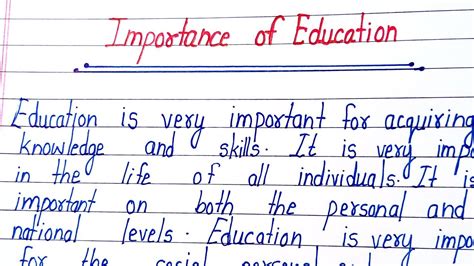 Importance of Education
Education is very important for acquiring
knowledge and skills. It is very imp
in the life of all individuals. It is
important on both the personal and
national levels. Education is very impo
for the social personal and